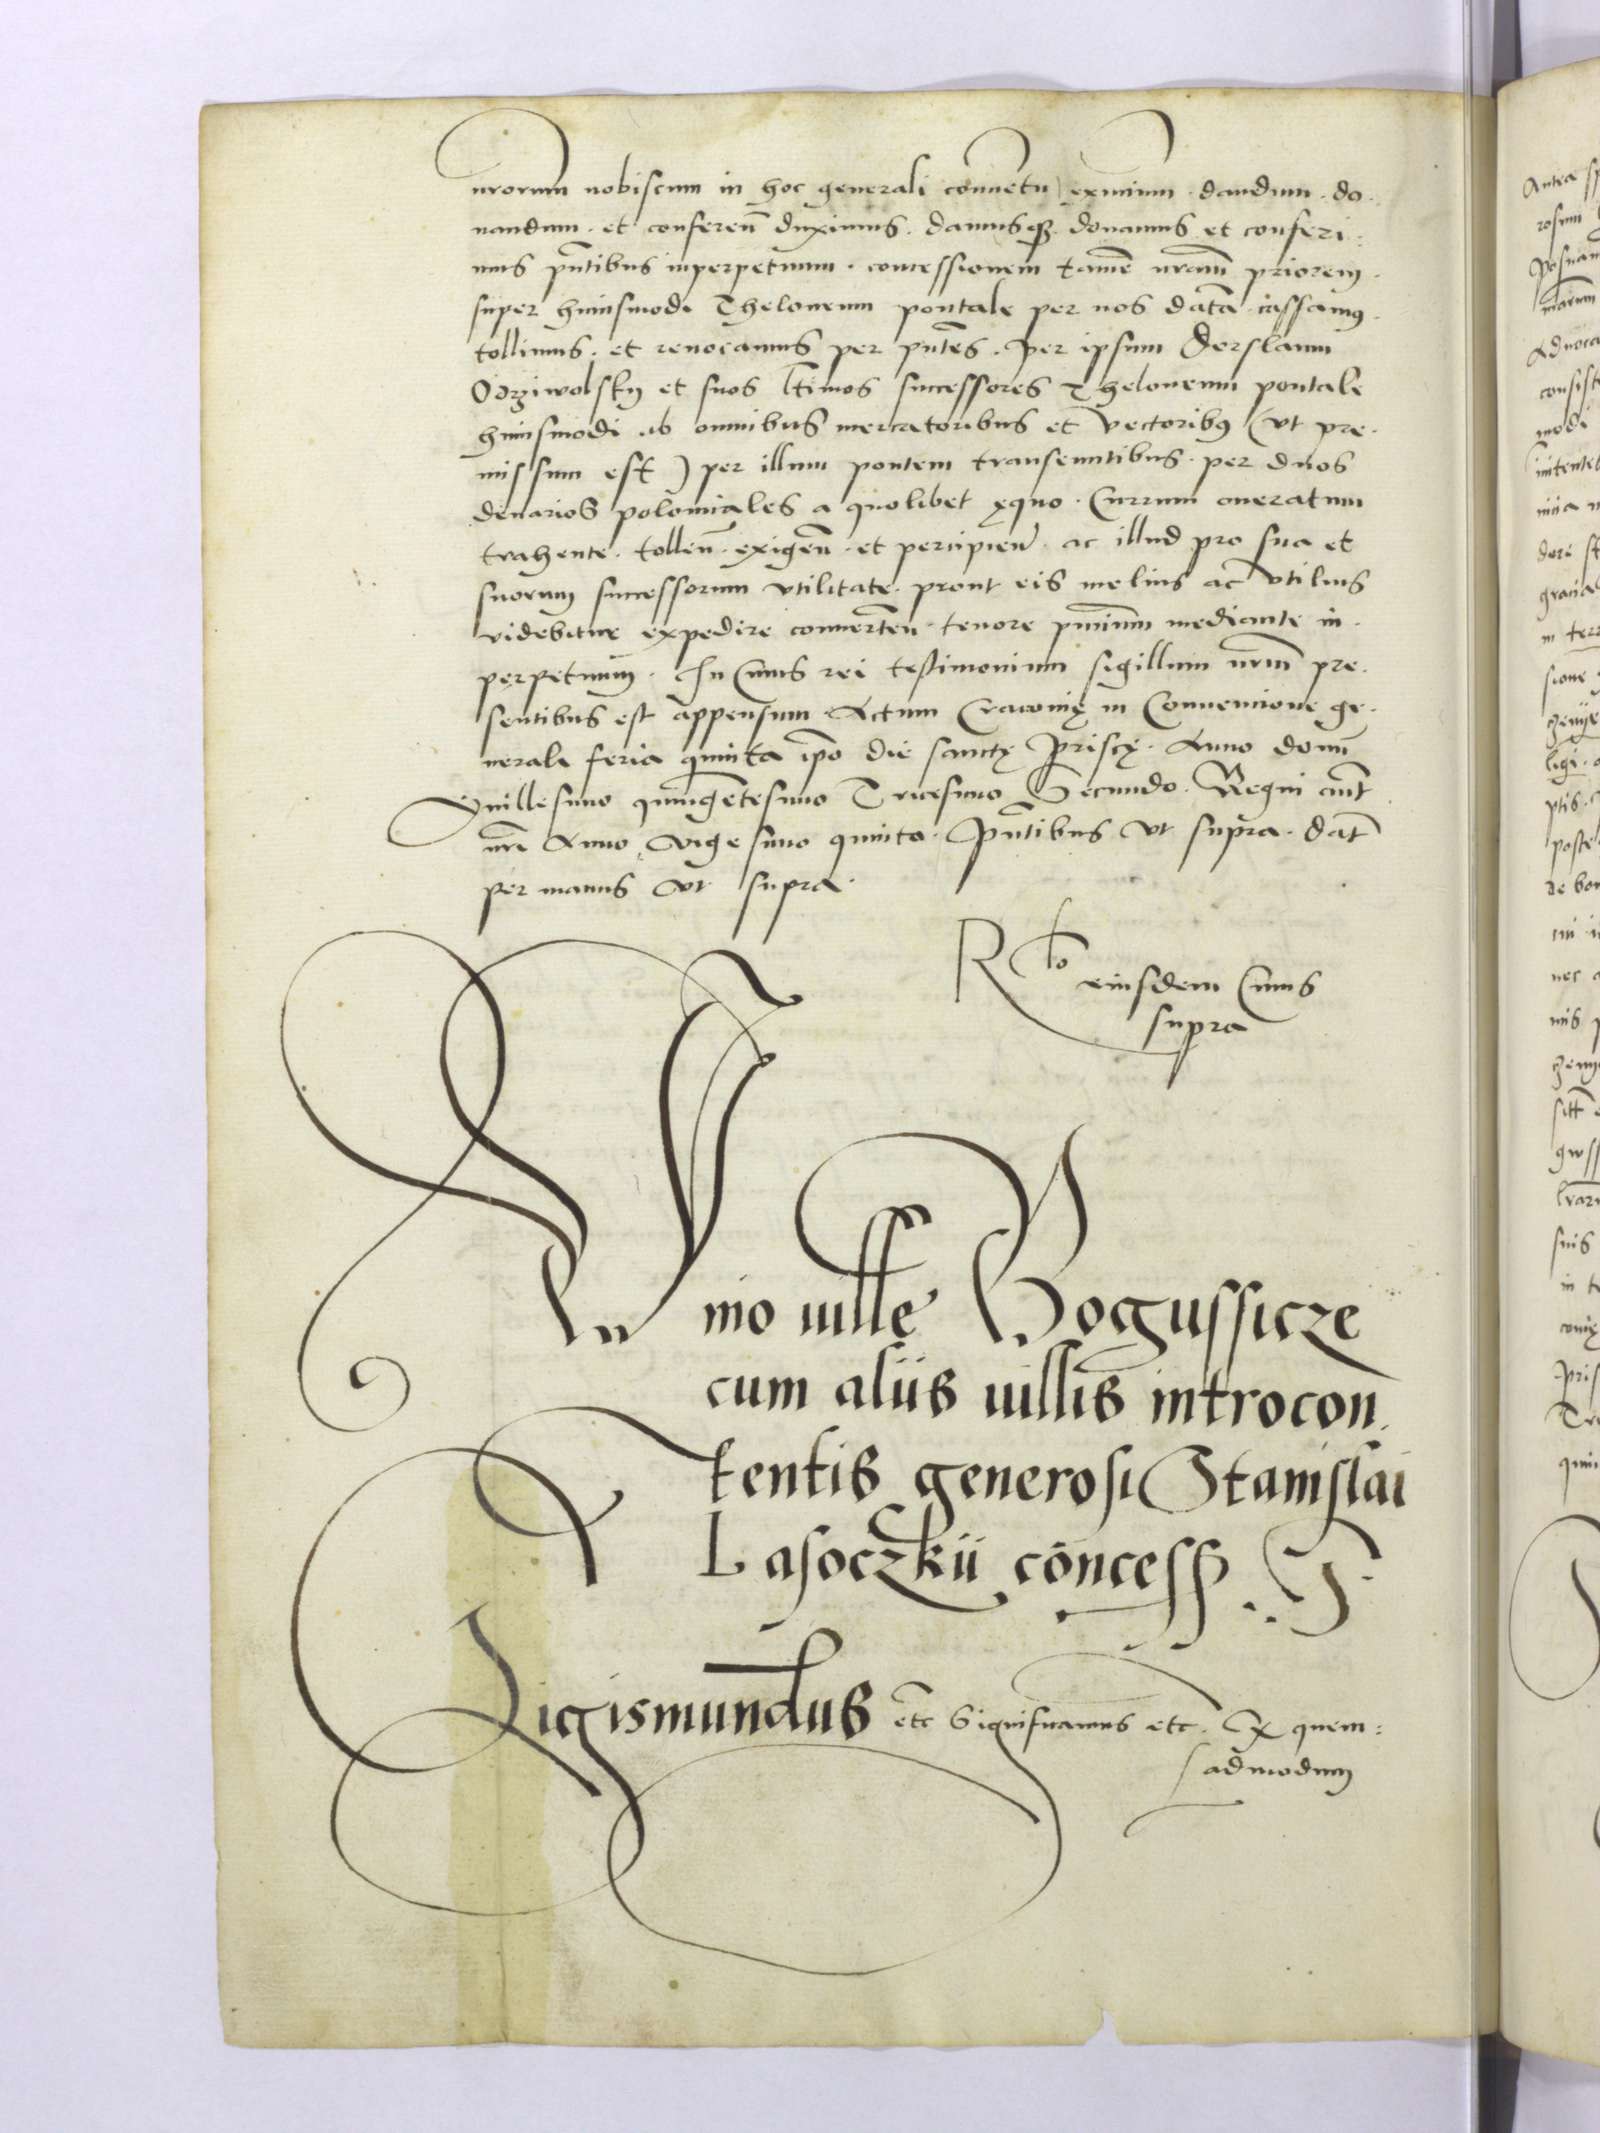 nrorum nobiscum in hoc generali convētu exmium. dandum. do.
nandum. et conferen̄ duximus. damusqꝫ donamus et conferi:
mus pn̄tibus inperpetuum. concessionem tamē nram̄ priorem.
super huiusmodi Theloneum pontale per nos datā cassamus.
tollimus. et revocamus per pn̄tes. per ipsum Derslaum
Odziwolsky et suos ltimos successores Theloneum pontale
huiusmodi ab omnibus mercatoribus et Vectoribus (vt pre.
missum est) per illum pontem transeuntibus. per duos
denarios polonicales a quolibet equo. Currum oneratum
trahente. tollen̄. exigen̄. et percipien̄. ac illud pro sua et
suorum successorum vtilitate. prout eis melius ac vtilius
videbitur expedire converten̄. tenore pn̄cium mediante in.
perpetuum. In Cuius rei testimonium sigillum nrm̄ pre.
sentibus est appensum. Actum Cracovię in Convencione ge.
nerali feria quinta ip̄o die sanctę Priscę. Anno domī
Millesimo quingētesimo Tricesimo Secundo. Regni autē
nrī Anno vigesimo quinto. Pn̄tibus vt supra. dat̄
per manus vt supra.
R lo eiusdem Cuius
supra
nio ville Bogussicze
cum aliis villis introcon.
tentis generosi Stanislai
Lasoczkii concess
Sigismundus etc Significamus etc. Q quem:
admodum
Antea
rosum
posnan
marum
Advoca
consist
modi
intentet
gracia
in terr
sione
ligi.
ptis.
poste
de bon
nec
mis
suis
in
pris
quin